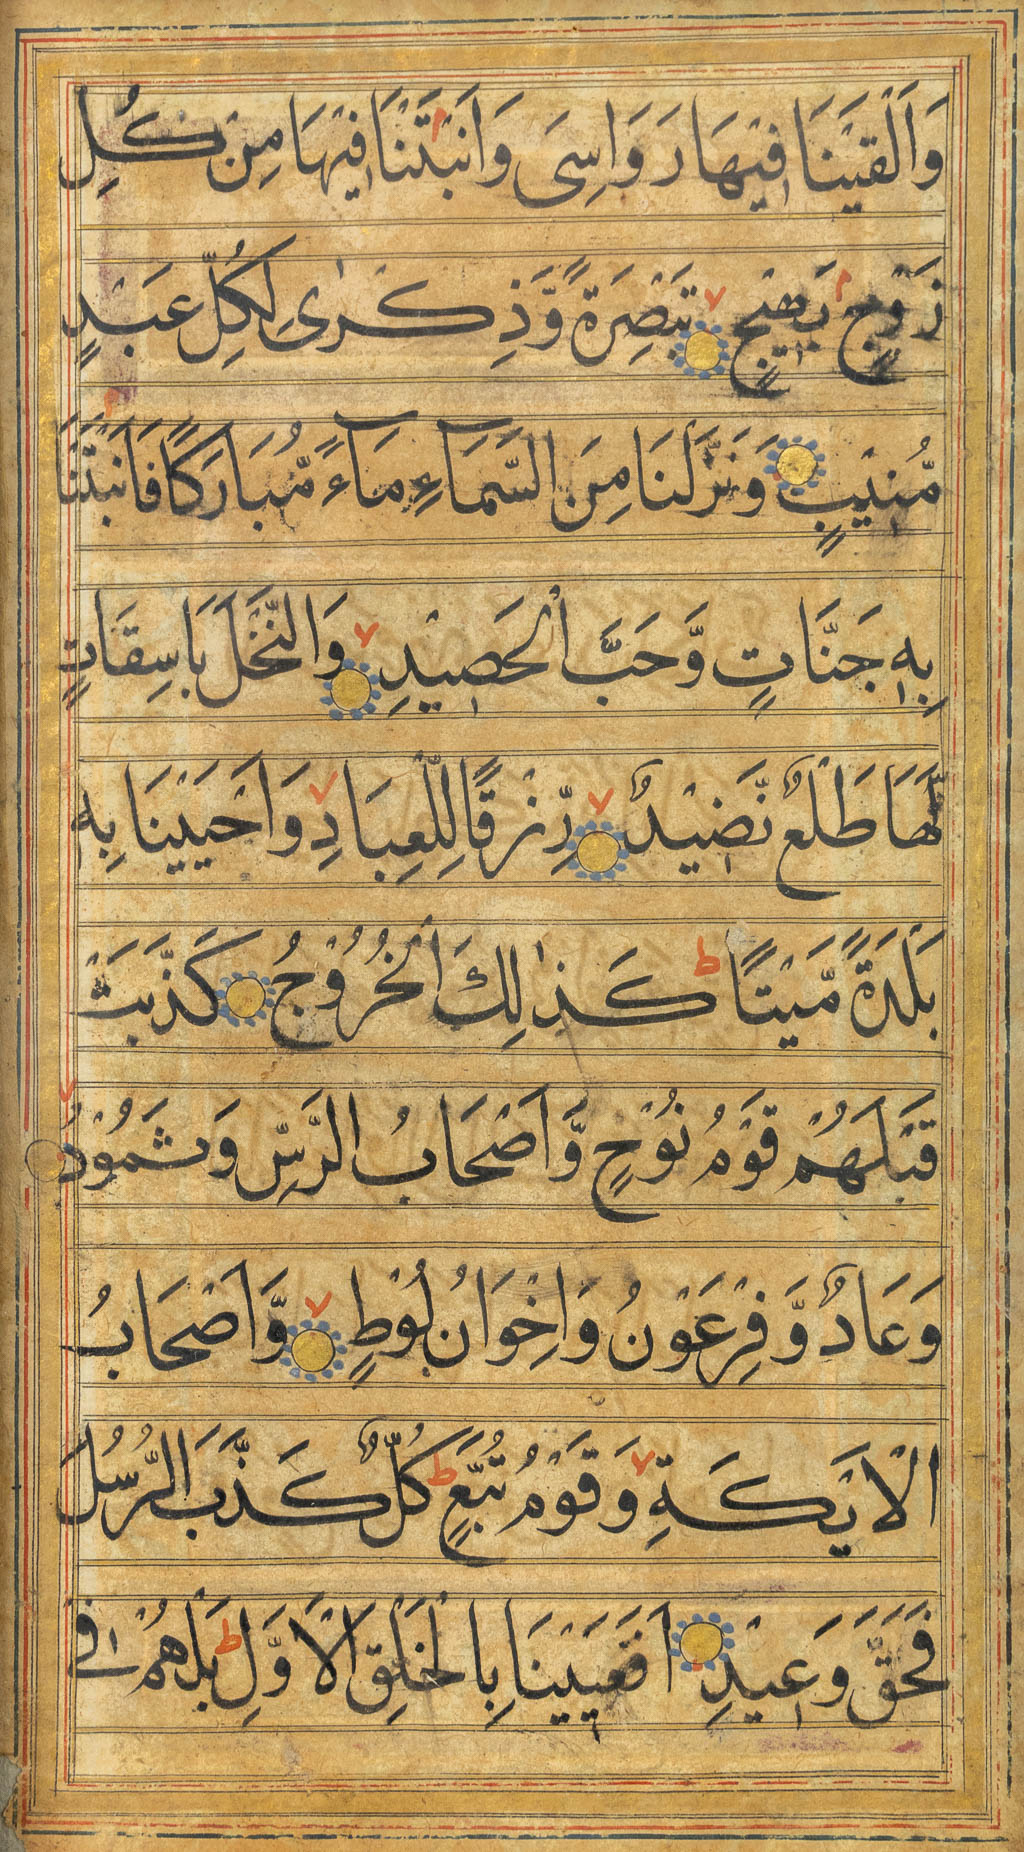 وَاَلْقَيْنَا فِيْهَا رَوَاسِىَ وَاَنْۢبَتْنَا فِيْهَا مِنْ كُلِّ
زَوْجٍۢ بَهِيْجٍ ۙ تَبْصِرَةً وَّذِكْرٰى لِكُلِّ عَبْدٍ
مُّنِيْبٍ وَنَزَّلْنَا مِنَ السَّمَآءِ مَآءً مُّبَارَكًا فَاَنْۢبَتْنَا
بِهٖ جَنَّاتٍ وَّحَبَّ الْحَصِيْدِ ۙ وَالنَّخْلَ بَاسِقَاتٍ
لَّهَا طَلْعٌ نَّضِيْدٌ ۙ رِّزْقًا لِلْعِبَادِ ۙ وَاَحْيَيْنَا بِهٖ
بَلْدَةً مَّيْتًا ؕ كَذٰلِكَ الْخُرُوْجُ كَذَّبَتْ
قَبْلَهُمْ قَوْمُ نُوْحٍ وَّاَصْحَابُ الرَّسِّ وَثَمُوْدُ ۙ
وَعَادٌ وَّفِرْعَوْنُ وَاِخْوَانُ لُوْطٍ ۙ وَّاَصْحَابُ
الْاَيْكَةِ وَقَوْمُ تُبَّعٍ ؕ كُلٌّ كَذَّبَ الرُّسُلَ
فَحَقَّ وَعِيْدِ اَفَعَيِيْنَا بِالْخَلْقِ الْاَوَّلِ ؕ بَلْ هُمْ فِىْ